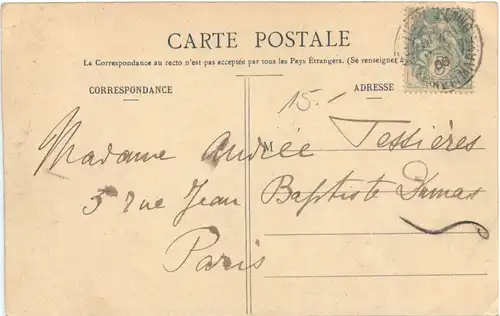 CARTE POSTALE
La Correspondance au recto n'est pas acceptée par tous les Pays Étrangers. (Se renseigner à
CORRESPONDANCE
ADRESSE
15.-
M
Madame Andrée Tessières
5 rue Jean Baptiste Dumas
Paris